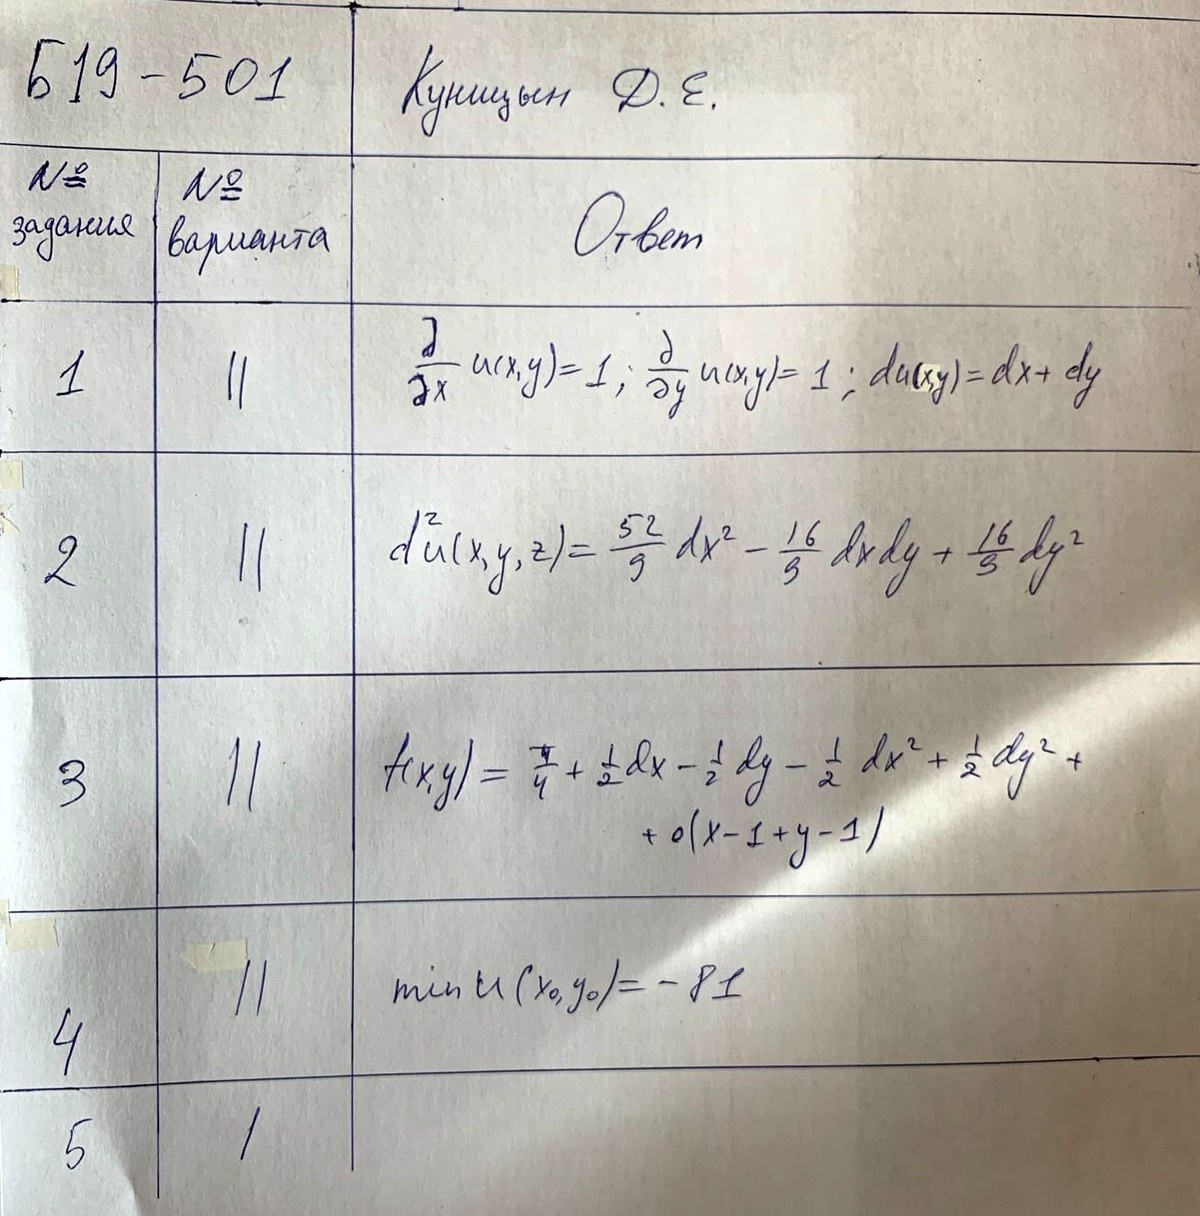 Б19-501 Куницын Д.Е.
№ задания № варианта Ответ
1 11 ∂/∂x u(x,y)=1; ∂/∂y u(x,y)=1; du(x,y)=dx+dy
2 11 d²u(x,y,z)= 52/9 dx² - 16/9 dxdy + 16/9 dy²
3 11 f(x,y)= π/4 + 1/2 dx - 1/2 dy - 1/2 dx² + 1/2 dy² +
+ o(x-1+y-1)
4 11 min u(x₀,y₀)= -81
5 1